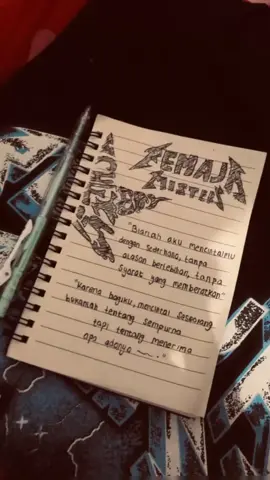 REMAJA
MISTERI
"Biarlah aku mencintaimu
dengan sederhana, tanpa
alasan berlebihan, tanpa
syarat yang memberatkan."
"Karena bagiku, mencintai seseorang
bukanlah tentang sempurna
tapi tentang menerima
apa adanya